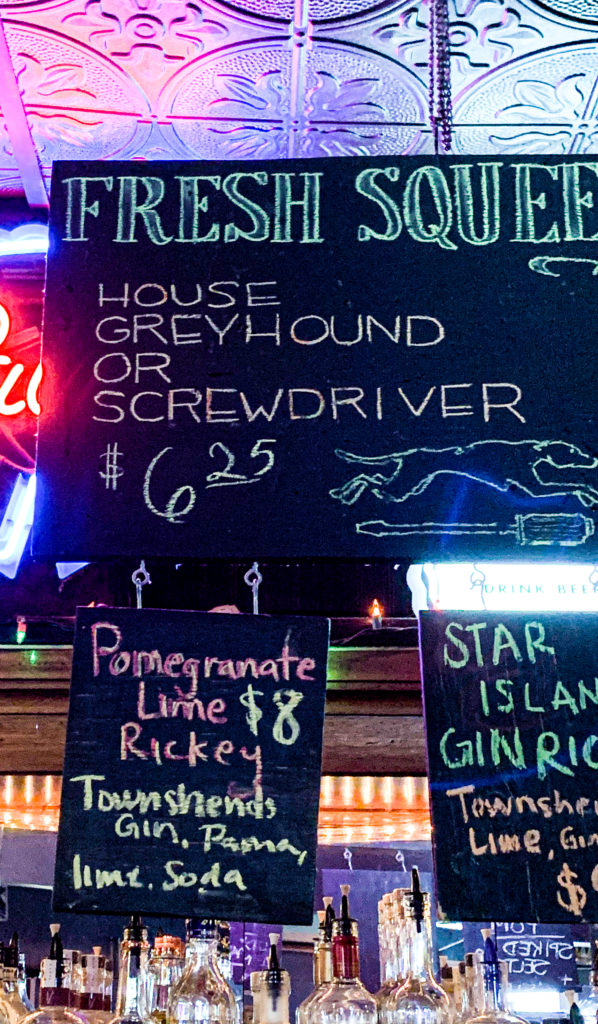 FRESH SQUEE
HOUSE
GREYHOUND
OR
SCREWDRIVER
$6.25
DRINK BEE
Pomegranate
Lime $8
Rickey
Townshends
Gin, Pama,
lime, Soda
STAR
ISLAN
GIN RIC
Townshe
Lime, Gin
$
SPIKED
SELT